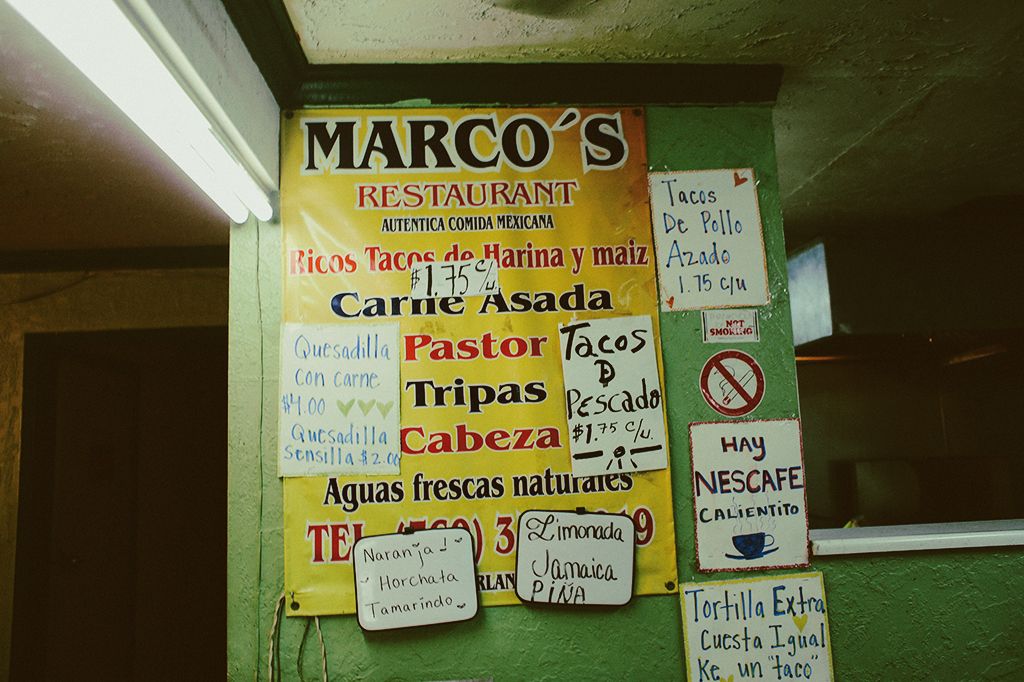 MARCO´S
RESTAURANT
AUTENTICA COMIDA MEXICANA
Ricos Tacos de Harina y maiz
$1.75 c/u
Carne Asada
Pastor
Tripas
Cabeza
Aguas frescas naturales
TEL.
Quesadilla
con carne
$4.00
Quesadilla
Sensilla $2.00
Tacos
D
Pescado
$1.75 c/u.
Naranja
Horchata
Tamarindo
Limonada
Jamaica
PIÑA
Tacos
De Pollo
Azado
1.75 c/u
NOT
SMOKING
HAY
NESCAFE
CALIENTITO
Tortilla Extra
Cuesta Igual
Ke un "taco"